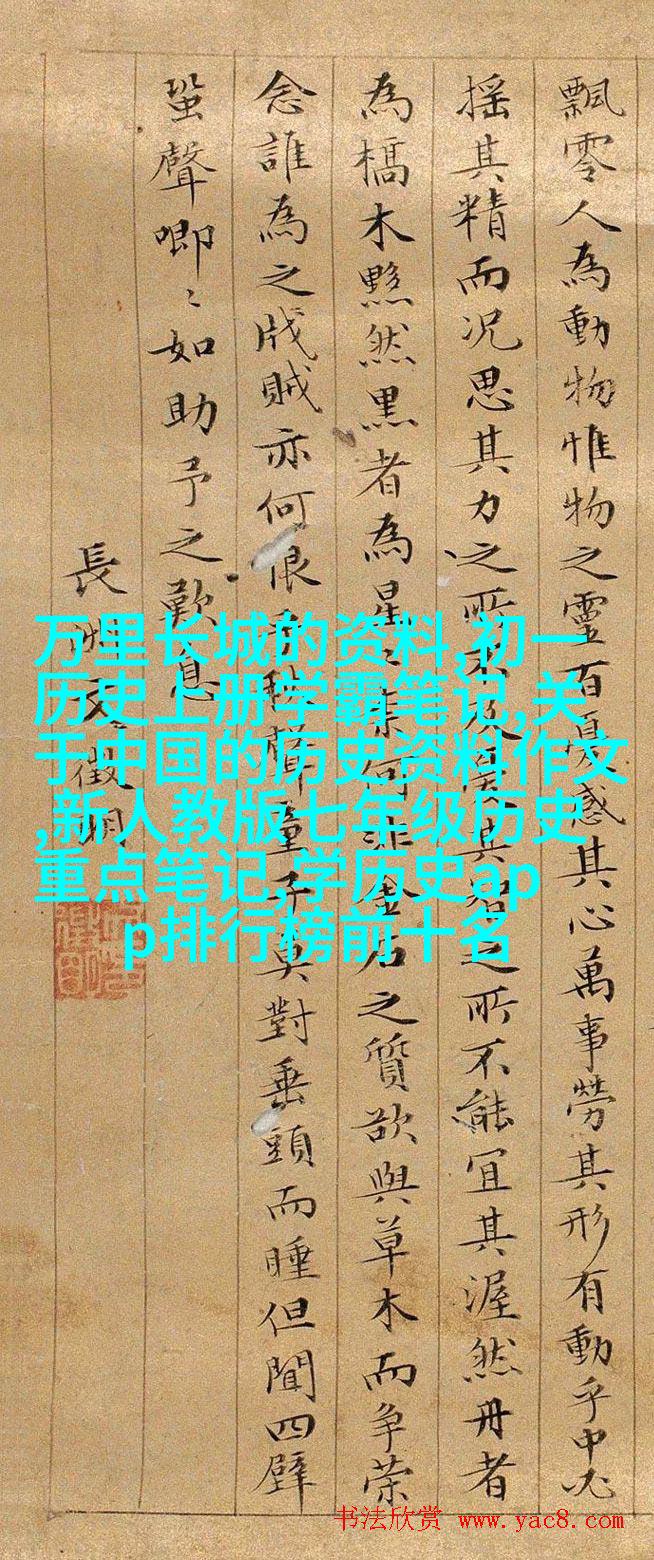 飄零人為動物惟物之靈百憂感其心萬事勞其形有動乎中必
搖其精而況思其力之所不及憂其智之所不能宜其渥然丹者
為槁木黟然黑者為星〻奈何非金石之質欲與草木而争榮
念誰為之戕賊亦何恨乎秋聲童子莫對垂頭而睡但聞四壁
蛩聲唧〻如助予之歎息
長洲文徵明
万里长城的资料,初一
历史上册学霸笔记,关
于中国的历史资料作文
,新人教版七年级历史
重点笔记,学历史ap
p排行榜前十名
书法欣赏 www.yac8.com